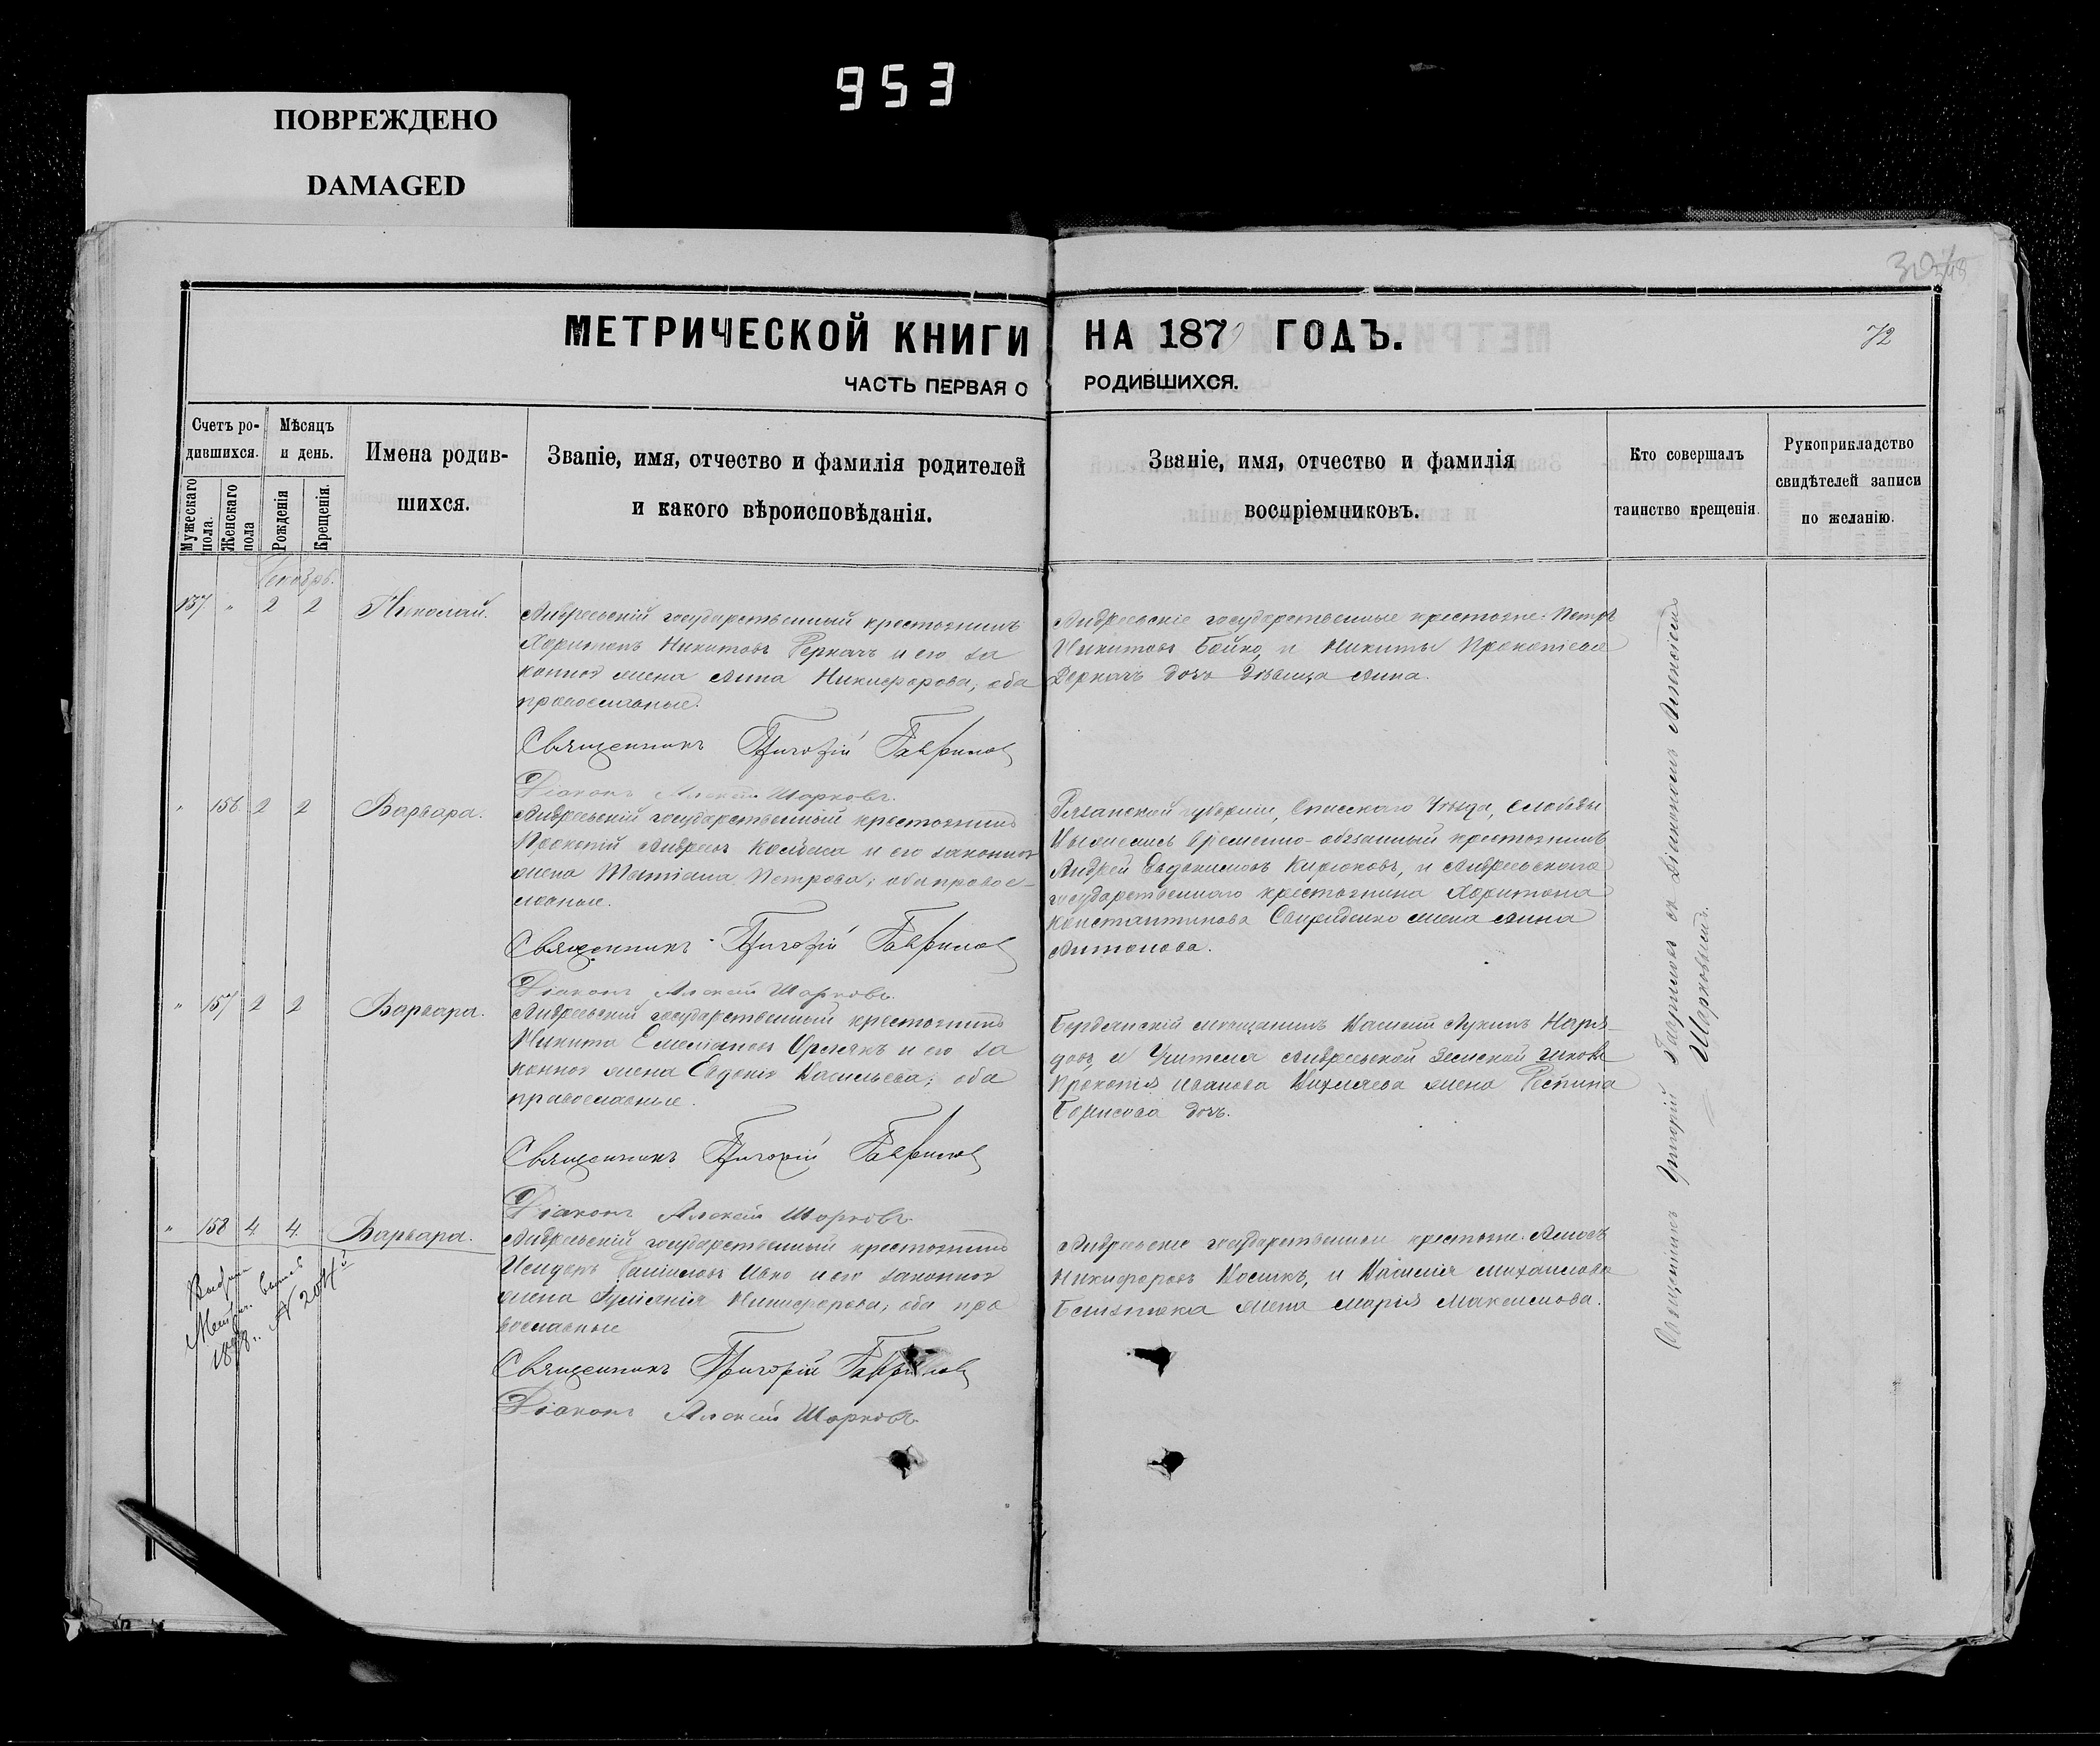 953
ПОВРЕЖДЕНО
DAMAGED
72
МЕТРИЧЕСКОЙ КНИГИ НА 187 ГОДЪ.
ЧАСТЬ ПЕРВАЯ О РОДИВШИХСЯ.
Счетъ ро-
дившихся.
Мужескаго
пола.
Женскаго
пола
Мѣсяцъ
и день.
Рожденія
Крещенія.
Имена родив-
шихся.
Званіе, имя, отчество и фамилія родителей
и какого вѣроисповѣданія.
Званіе, имя, отчество и фамилія
воспріемниковъ.
Кто совершалъ
таинство крещенія.
Рукоприкладство
свидѣтелей записи
по желанію.
Декабрь.
137 " 2 2 Николай.
Андреевскій государственный крестьянинъ
Харитонъ Никитовъ Деркачъ и его за
конная жена Анна Никифорова, оба
православные.
Священникъ Григорій Гавриловъ
Діаконъ Алексѣй Шарковъ.
Андреевскіе государственные крестьяне: Петръ
Никитовъ Бойко, и Никиты Прокопіева
Деркачъ дочь дѣвица Анна.
" 156 2 2 Варвара.
Андреевскій государственный крестьянинъ
Прокопій Андреевъ и его законная
жена Татіана Петрова; оба правос-
лавные.
Священникъ Григорій Гавриловъ
Діаконъ Алексѣй Шарковъ.
Рязанской губерніи, Спасскаго Уѣзда, слободы
временно-обязанный крестьянинъ
Андрей Евдокимовъ Кирюковъ, и Андреевскаго
государственнаго крестьянина Харитона
Константинова Свириденко жена Анна
Антонова.
" 157 2 2 Варвара.
Андреевскій государственный крестьянинъ
Никита Емеліановъ и его за
конная жена Евдокія Васильева; оба
православные.
Священникъ Григорій Гавриловъ
Діаконъ Алексѣй Шарковъ
Бердянскій мѣщанинъ Василій Лукинъ
и Учителя Андреевской Земской школы
Прокопія Иванова жена
Борисова дочь.
" 158 4 4 Варвара.
Андреевскій государственный крестьянинъ
Исидоръ Даніиловъ Ивко и его законная
жена Никифорова, оба пра
вославные
Священникъ Григорій Гавриловъ
Діаконъ Алексѣй Шарковъ.
Андреевскіе государственные крестьяне: Амосъ
Никифоровъ и Василія Михайлова
жена Марія Максимова.
1898 г. № 204
Священникъ Григорій Гавриловъ съ Діакономъ Алексѣемъ
Шарковымъ.